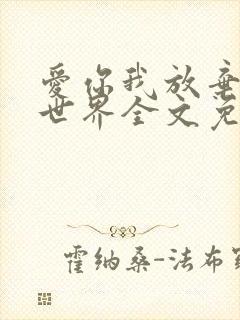 爱你我放弃
世界全文免
霍纳桑-法布